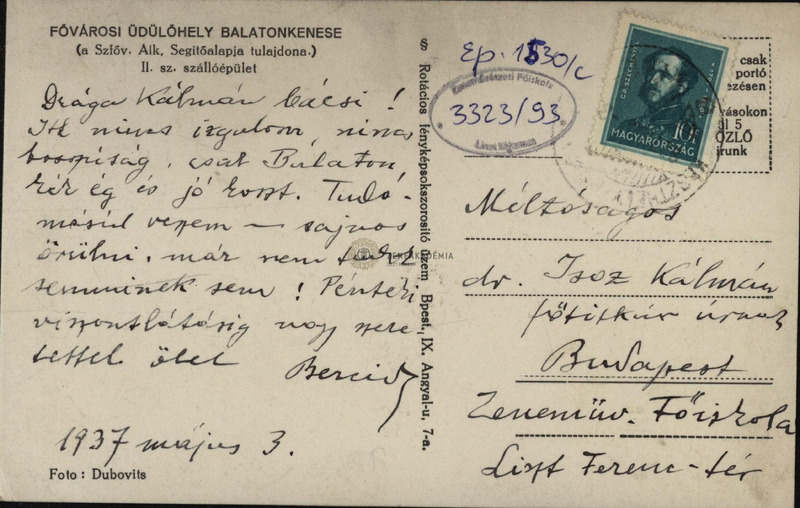 FŐVÁROSI ÜDÜLŐHELY BALATONKENESE
(a Szföv. Alk. Segitőalapja tulajdona.)
II. sz. szállóépület
Drága Kálmán bácsi!
Itt nincs izgalom nincs
bosszúság, csak Balaton
víz ég és jó koszt. Tudo-
másul veszem – sajnos
örülni, már nem tudsz
semminek sem! Pénteki
viszontlátásig nagy szere-
tettel ölel
1937 május 3.
Foto: Dubovits
§§ Rotációs fényképsokszorosító üzem Bpest, IX. Angyal-u. 7-a.
Ep. 1530/c
Zeneművészeti Főiskola
3323/93
Liszt Múzeum
CS. SZÉCHENYI I.
10f
MAGYARORSZÁG
csak
portó
ezésen
vásokon
ül 5
ÖZLŐ
irunk
ZENEAKADÉMIA
Méltóságos
dr. Isoz Kálmán
főtitkár úrnak
Budapest
Zeneműv. Főiskola
Liszt Ferenc-tér